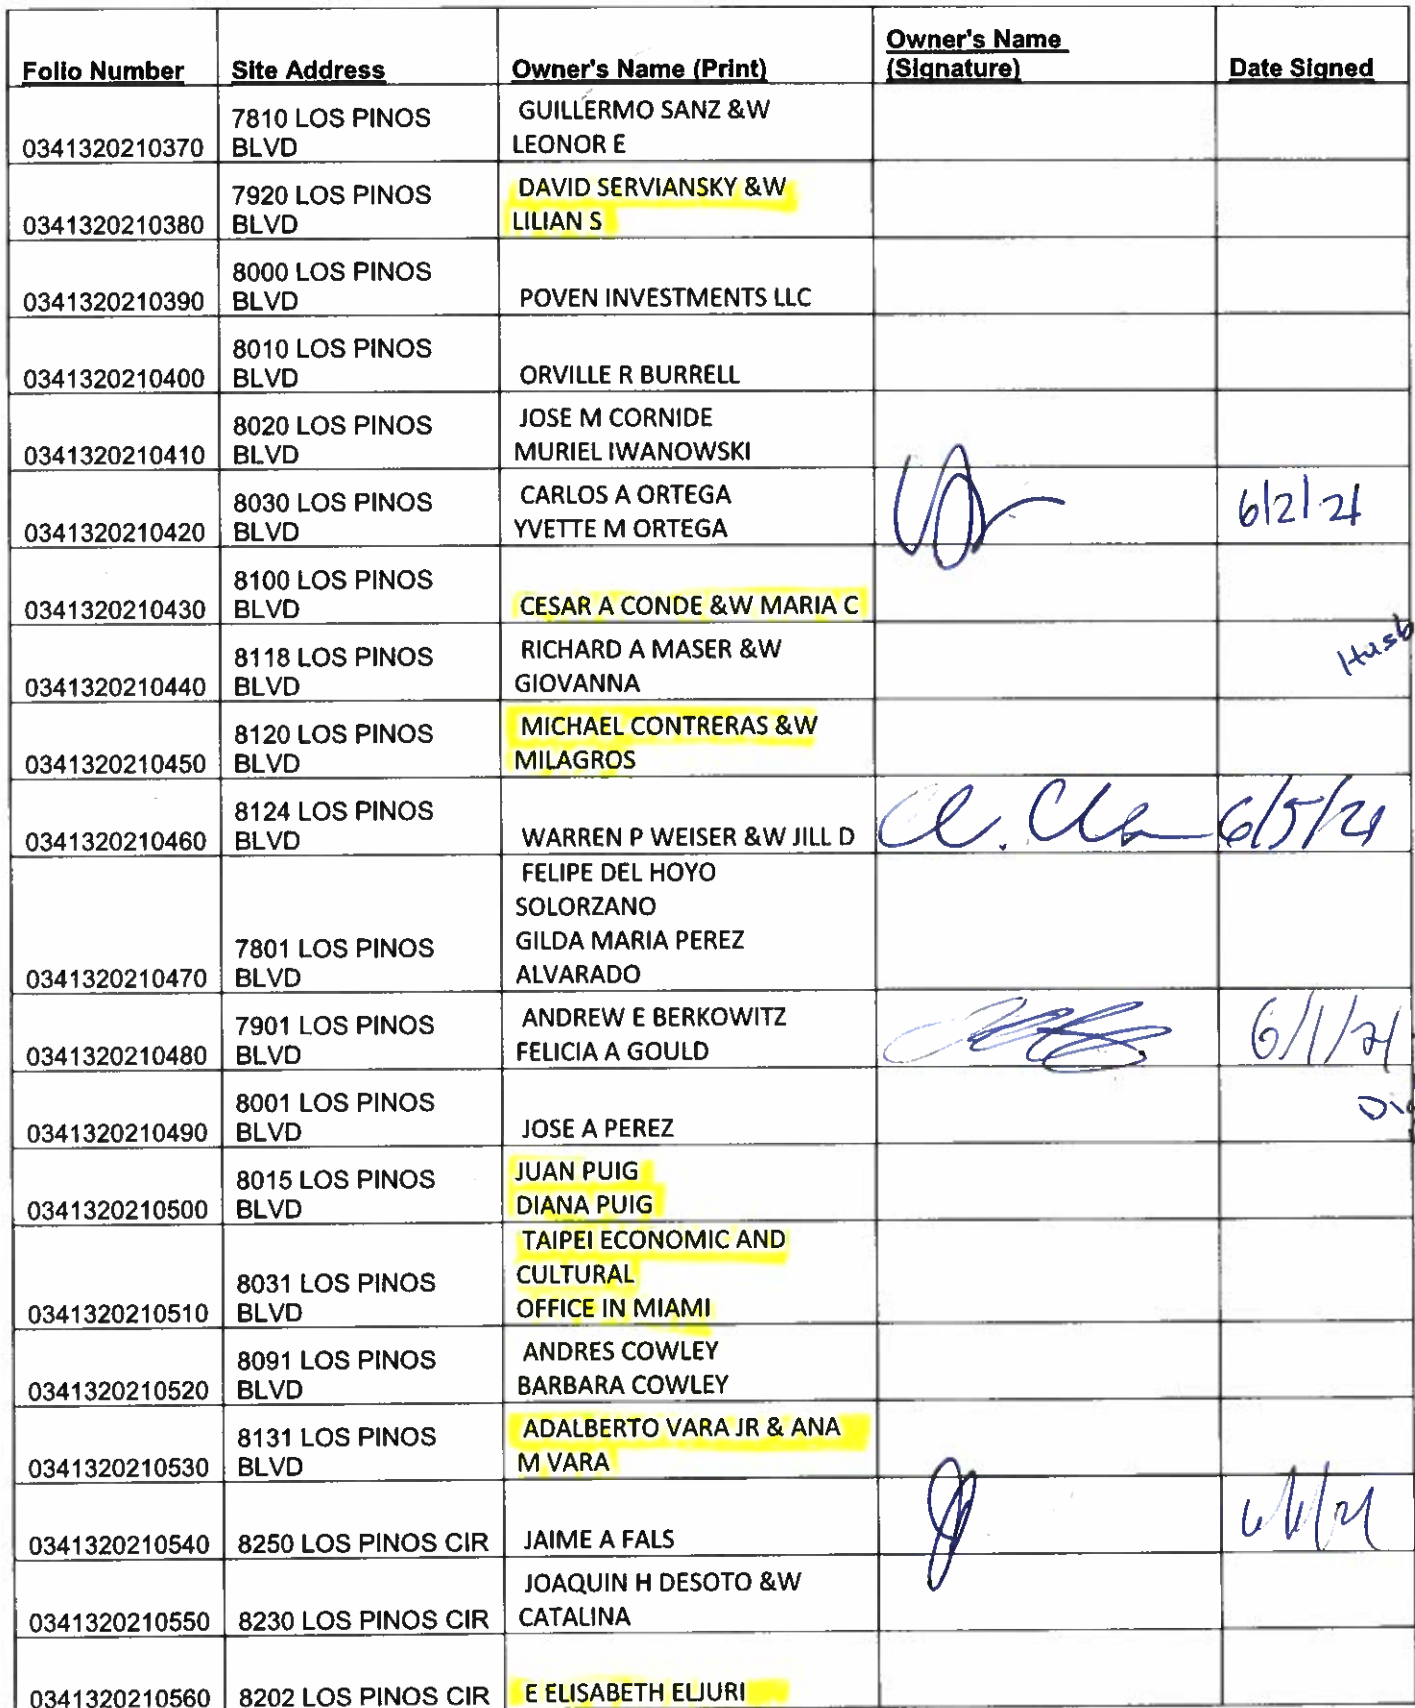 Folio Number
Site Address
Owner's Name (Print)
Owner's Name
(Signature)
Date Signed
0341320210370
7810 LOS PINOS
BLVD
GUILLERMO SANZ &W
LEONOR E
0341320210380
7920 LOS PINOS
BLVD
DAVID SERVIANSKY &W
LILIAN S
0341320210390
8000 LOS PINOS
BLVD
POVEN INVESTMENTS LLC
0341320210400
8010 LOS PINOS
BLVD
ORVILLE R BURRELL
0341320210410
8020 LOS PINOS
BLVD
JOSE M CORNIDE
MURIEL IWANOWSKI
0341320210420
8030 LOS PINOS
BLVD
CARLOS A ORTEGA
YVETTE M ORTEGA
6/2/21
0341320210430
8100 LOS PINOS
BLVD
CESAR A CONDE &W MARIA C
0341320210440
8118 LOS PINOS
BLVD
RICHARD A MASER &W
GIOVANNA
Husb
0341320210450
8120 LOS PINOS
BLVD
MICHAEL CONTRERAS &W
MILAGROS
0341320210460
8124 LOS PINOS
BLVD
WARREN P WEISER &W JILL D
6/5/21
0341320210470
7801 LOS PINOS
BLVD
FELIPE DEL HOYO
SOLORZANO
GILDA MARIA PEREZ
ALVARADO
0341320210480
7901 LOS PINOS
BLVD
ANDREW E BERKOWITZ
FELICIA A GOULD
6/1/21
0341320210490
8001 LOS PINOS
BLVD
JOSE A PEREZ
0341320210500
8015 LOS PINOS
BLVD
JUAN PUIG
DIANA PUIG
0341320210510
8031 LOS PINOS
BLVD
TAIPEI ECONOMIC AND
CULTURAL
OFFICE IN MIAMI
0341320210520
8091 LOS PINOS
BLVD
ANDRES COWLEY
BARBARA COWLEY
0341320210530
8131 LOS PINOS
BLVD
ADALBERTO VARA JR & ANA
M VARA
0341320210540
8250 LOS PINOS CIR
JAIME A FALS
0341320210550
8230 LOS PINOS CIR
JOAQUIN H DESOTO &W
CATALINA
0341320210560
8202 LOS PINOS CIR
E ELISABETH ELJURI